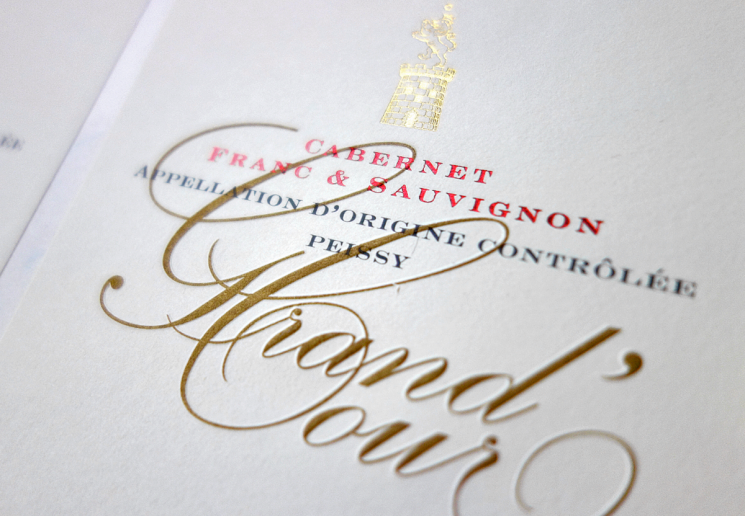 CABERNET
FRANC & SAUVIGNON
APPELLATION D'ORIGINE CONTRÔLÉE
PEISSY
Grand'
Cour